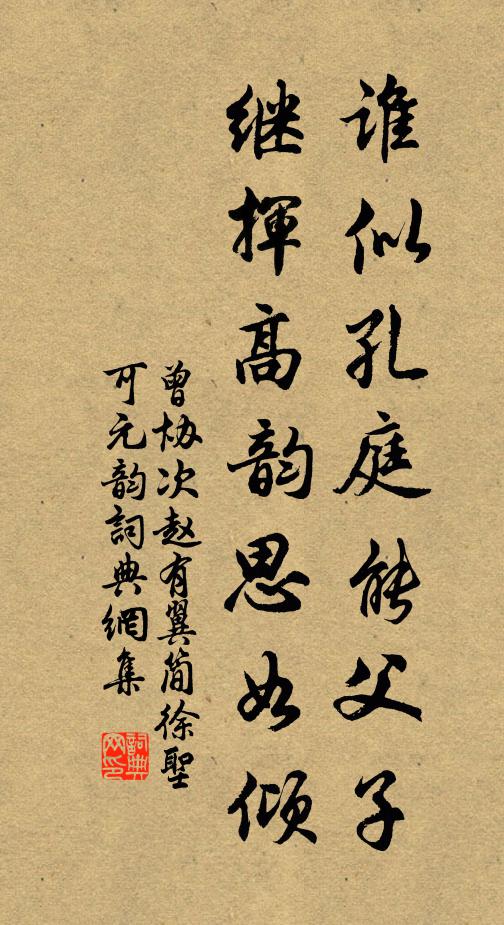 谁似孔庭能父子
继揮高韵思如倾
曾协次赵有翼简徐聖
可元韵詞典網集
詞典
网印